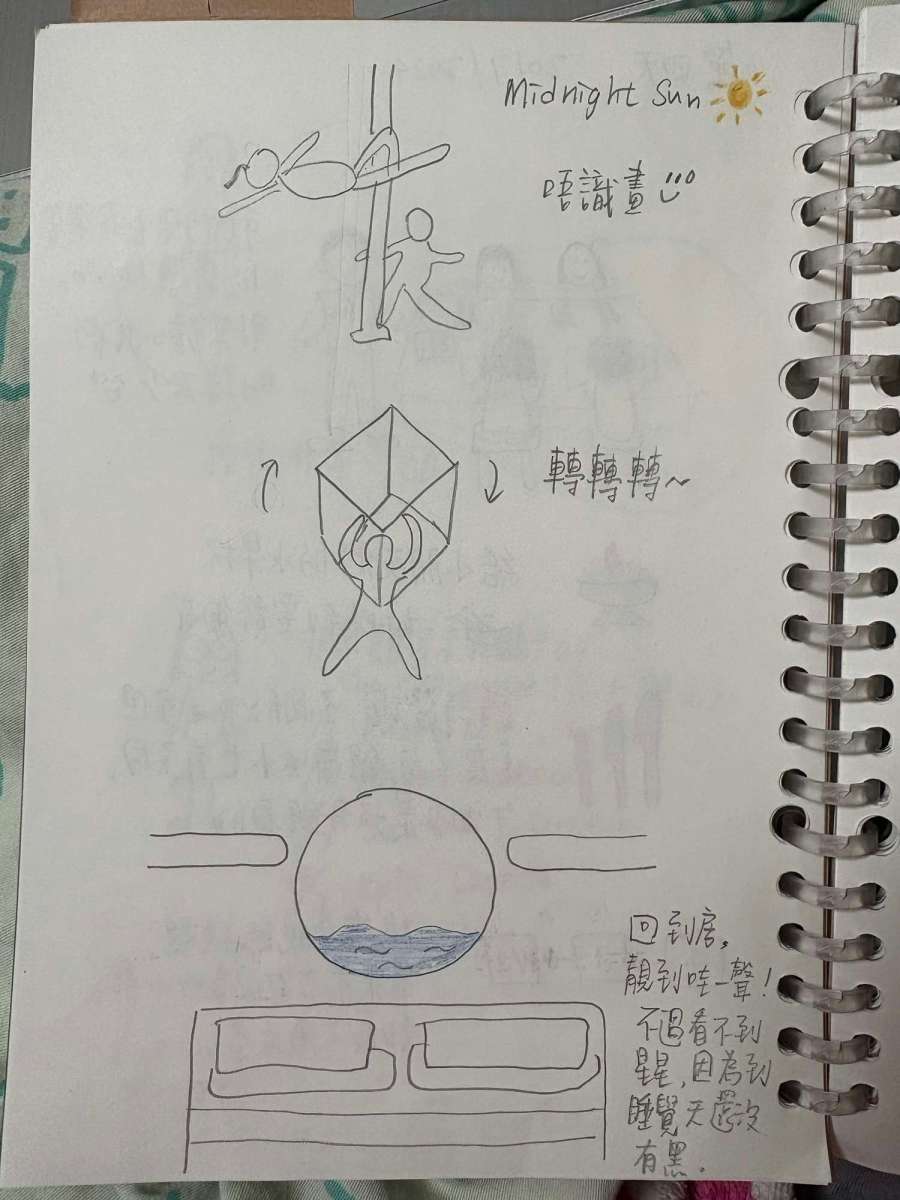 Midnight Sun
唔識畫
轉轉轉~
回到房，
靚到哇一聲！
不過看不到
星星，因為到
睡覺天還沒
有黑．